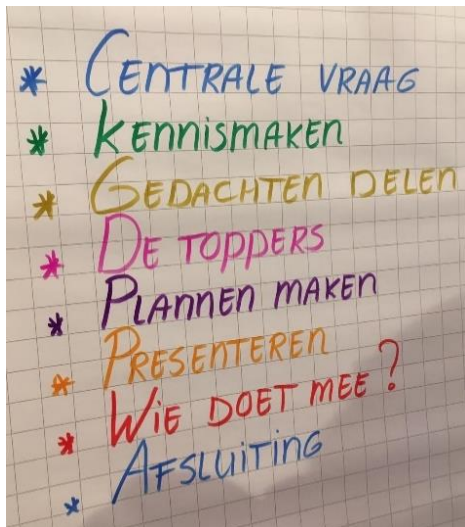 * CENTRALE VRAAG
* KENNISMAKEN
* GEDACHTEN DELEN
* DE TOPPERS
* PLANNEN MAKEN
* PRESENTEREN
* WIE DOET MEE?
* AFSLUITING